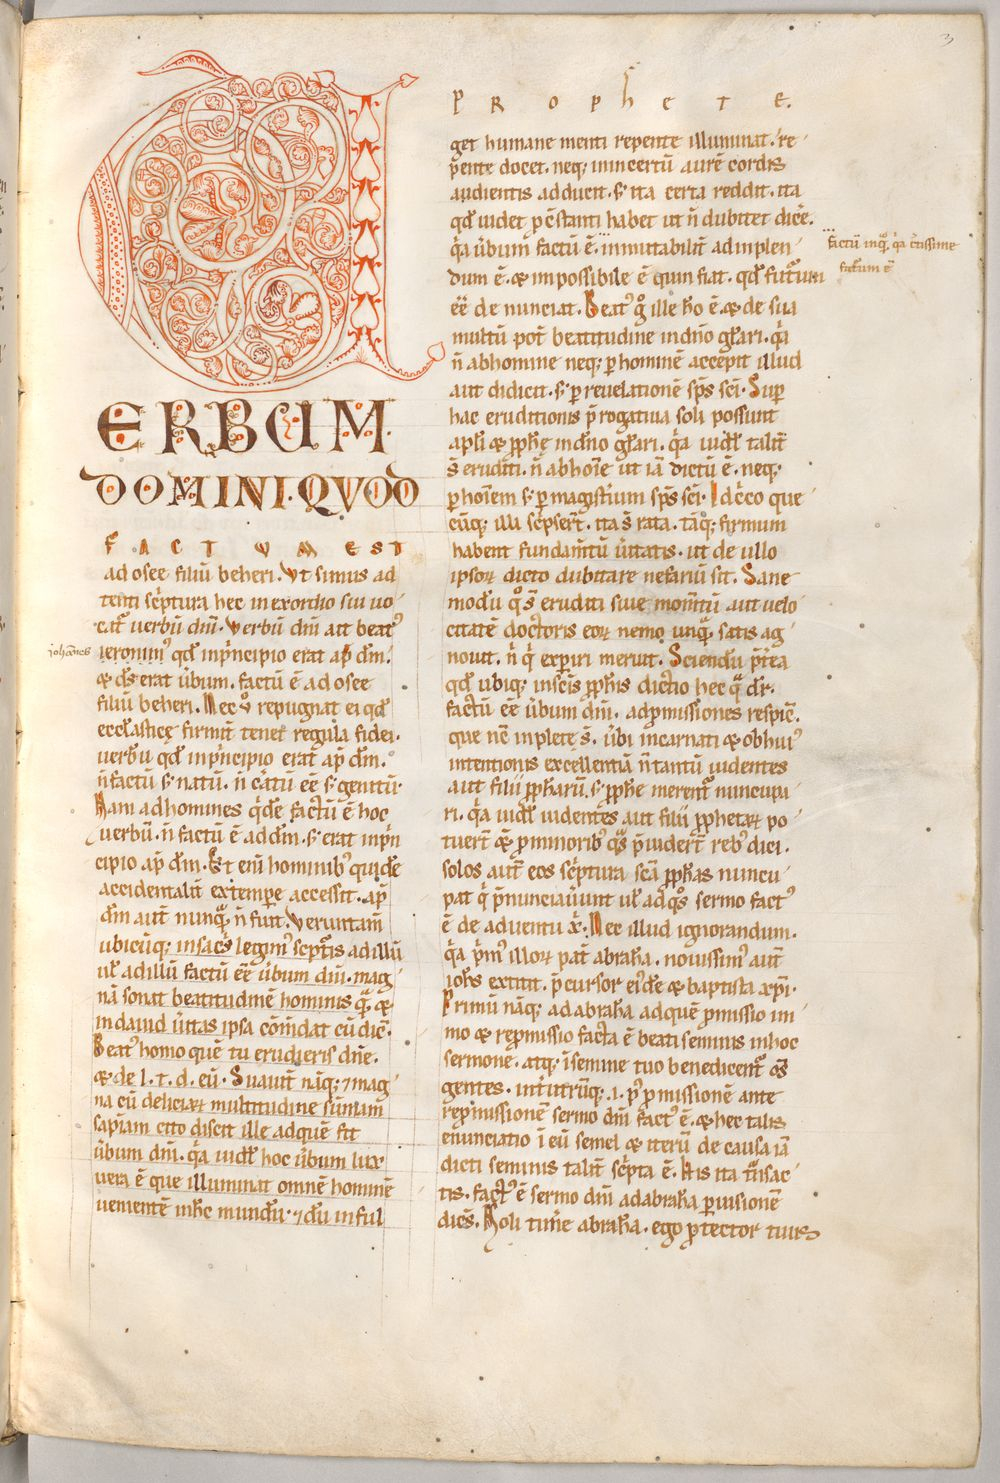 3
P R O P H E T E.
VERBUM
DOMINI. QVOD
FACTUM EST
ad osee filiū beheri. Vt simus ad
tenti sc͛iptura hec in exordio sui uo
cat᷑ uerbū dn̄i. Verbū dn̄i ait beatꝰ
iohānes
ieronimꝰ qd̄ inp͛ncipio erat ap̄ dm̄.
& ds̄ erat u͛bum. factū ē ad osee
filiū beheri. Nec u͛o repugnat ei qd̄
eccl̄astice firmit͛ tenet regula fidei.
uerbū qd̄ inp͛ncipio erat ap̄ dm̄.
n̄ factū s; natū. n̄ c͛atū eē s; genitū.
Nam ad homines q͛de factū ē hoc
uerbū. n̄ factū ē ad dm̄. s; erat inp͛n
cipio ap̄ dm̄. Et eni hominibꝰ quide
accidentalit͛ ex tempe accessit. ap̄
dm̄ aut̄ nunq̄ n̄ fuit. Veruntam̄
ubicūq; insac͛s legimꝰ sc͛pt͛is ad illū
ul̄ ad illū factū eē u͛bum dn̄i. mag
nā sonat beatitudinē hominis q̄ &
in dauid u͛itas ipsa cōm̄dat cū dic̄.
Beatꝰ homo quē tu erudieris dn̄e.
& de l. t. d. eū. Suauit͛ nāq; ⁊ mag
na cū deliciaꝝ multitudine sūmam
sapīam cito discit ille ad quē fit
u͛bum dn̄i. q͛a uidel̄ hoc u͛bum lux
uera ē que illuminat omnē hominē
uenientē inhc̄ mundū. ⁊ dū inful
get humane menti repente illuminat. re
pente docet. neq; inincertū aurē cordis
audientis adducit. s; ita certa reddit. ita
qd̄ uidet p̄ cstanti habet ut n̄ dubitet dic͛e.
q͛a u͛bum factū ē. inmutabilit͛ adimplen
factū inq̄. q͛a c͛tissime
futum ē
dum ē. & impossibile ē quin fiat. qd̄ futurum
eē denunciat. Beatꝰ g͛ ille hō ē. & de sua
multū pot̄ beatitudine indn̄o gl̄ari. q͛a
n̄ abhomine neq; p̱ hominē accepit illud
aut didicit. s; p̱ reuelationē sp̄s sc̄i. Sup̱
hac eruditionis p̄rogatiua soli possunt
apl̄i & p̱phe indn̄o gl̄ari. q͛a uidel̄ talit͛
s̄ eruditi. n̄ abhoīe ut iā dictū ē. neq;
p̱ hoīem s; p̱ magist͛ium sp̄s sc̄i. Idc͛co que
cūq; illi sc͛pser̄t. ita s̄ rata. tāq; firmum
habent fundam̄tū u͛itatis. ut de ullo
ipsoꝝ dicto dubitare nefariū sit. Sane
modū q͛ s̄ eruditi siue mom̄tū aut uelo
citatē doctoris eoꝝ nemo unq̄ satis ag
nouit. n̄ q͛ experiri meruit. Sciendū p̄tea
qd̄ ubiq; inscis p̱phis dictio hec q̄ dr̄.
factū eē u͛bum dn̄i. adp̱missiones respic̄.
que nc̄ inplete s̄. u͛bi incarnati & obhuiꝰ
intentionis excellentiā n̄ tantū uidentes
aut filii p̱phaꝝ. s; p̱phe meren̄t nuncupa
ri. q͛a uidel̄ uidentes aut filii p̱phetaꝝ po
tuer̄t & p̱ minoribꝰ q̄s p̄uider̄t rebꝰ dici.
solos aut̄ eos sc͛ptura scā p̱phas nuncu
pat q͛ p̄nunciauer̄unt ul̄ ad q͛s sermo factꝰ
ē de aduentu x͛. Nec illud ignorandum.
q͛a p͛mꝰ illoꝝ pat͛ abraha. nouissimꝰ aut̄
iohs̄ extitit. p̄cursor ei᷑de & baptista xp̄i.
Primū nāq; ad abrahā ad quē p̱missio im
mo & rep̱missio facta ē beati seminis inhoc
sermone. atq; ī semine tuo benedicent᷑ oms̄
gentes. int͛ utrūq; .i. p̱ꝰ p̱missionē ante
rep̱missionē sermo dn̄i factꝰ ē. & hec talis
enunciatio ī eū semel & iterū de causa iā
dicti seminis talit͛ sc͛pta ē. His ita t͛nsac
tis. factꝰ ē sermo dn̄i ad abrahā p̱ uisionē
dices̄. Noli tim͛e abrahā. ego p̱tector tuus